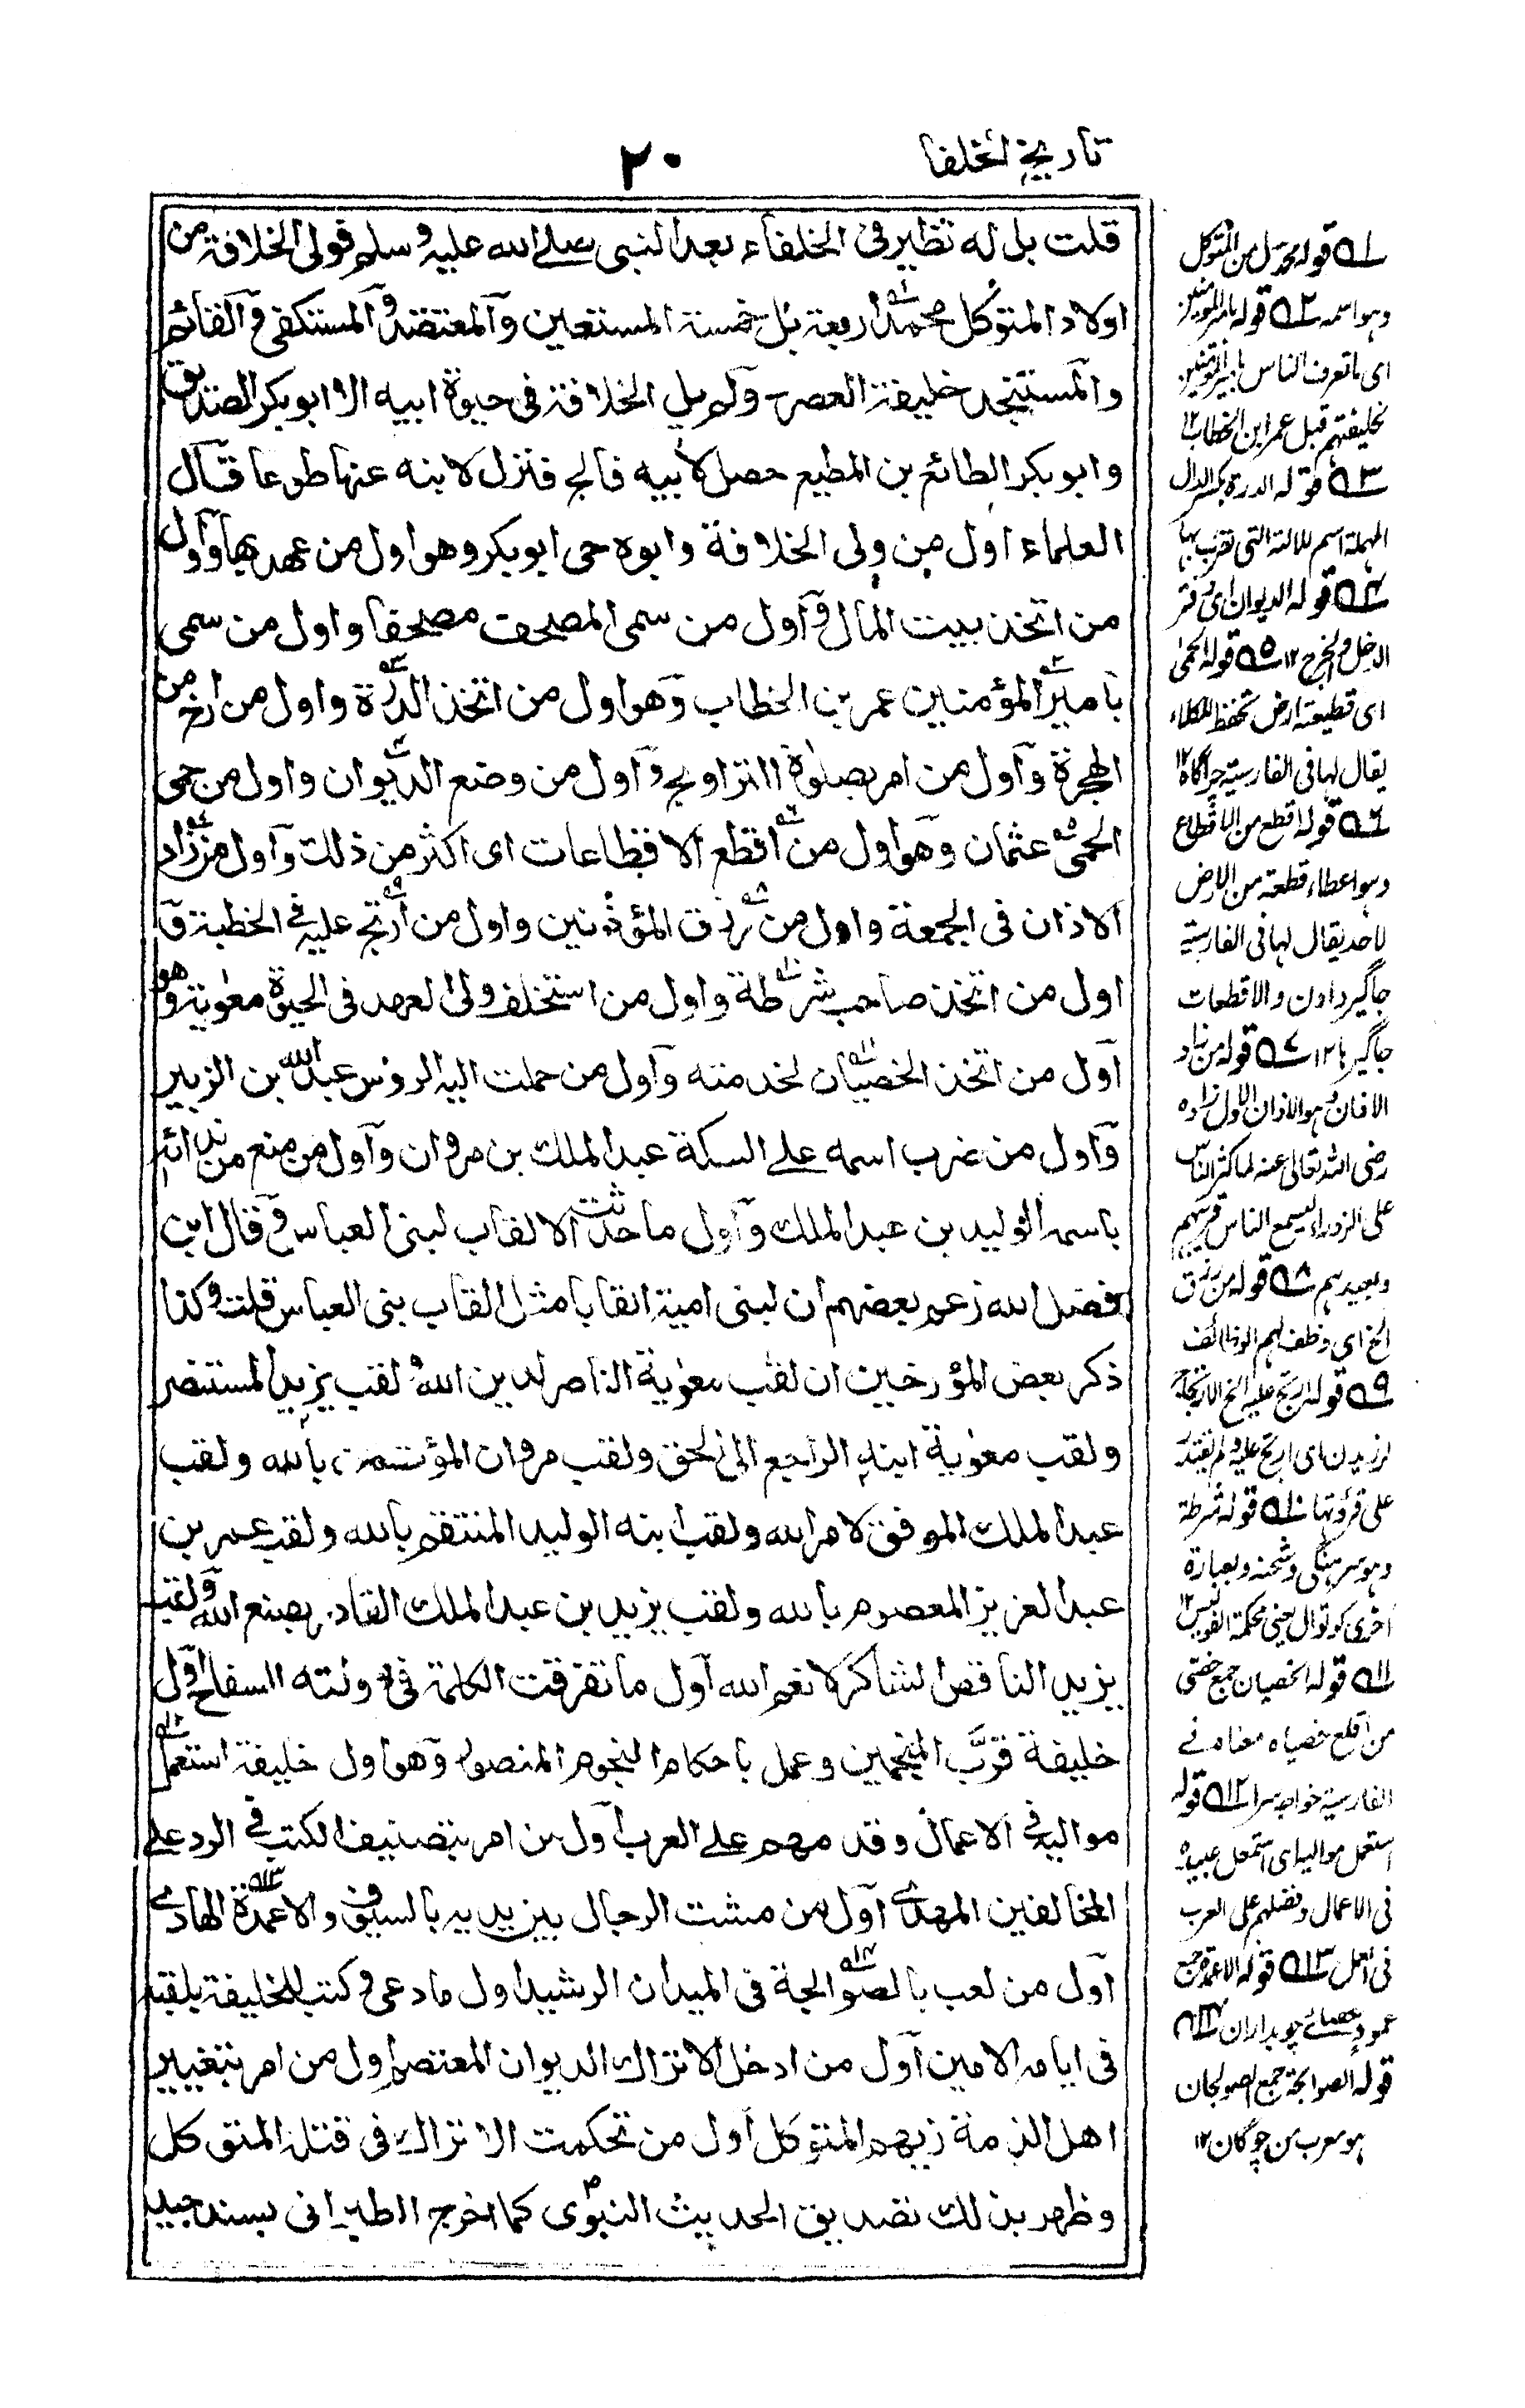 تاريخ الخلفا
٢٠
قلت بل له نظير فى الخلفاء بعد النبى صلے الله عليه وسلم فولى الخلافة من
اولاد المتوكل محمد اربعة بل خمسة المستعين والمعتضد والمستكفى والقائم
والمستنجد خليفة العصر ولم يل الخلافة فى حيوة ابيه الا ابو بكر الصديق
وابو بكر الطائع بن المطيع حصل لأبيه فالج فنزل لابنه عنها طوعا قال
العلماء اول من ولى الخلافة وابوه حى ابو بكر وهو اول من عهد بها واول
من اتخذ بيت المال واول من سمى المصحف مصحفا واول من سمى
بامير المؤمنين عمر بن الخطاب وهو اول من اتخذ الدرة واول من ارخ من
الهجرة واول من امر بصلوة التراويح واول من وضع الديوان واول من حمى
الحمى عثمان وهو اول من اقطع الاقطاعات اى اكثر من ذلك واول من زاد
الاذان فى الجمعة واول من رزق المؤذنين واول من أرتج عليه فے الخطبة و
اول من اتخذ صاحب شرطة واول من استخلف ولى العهد فى الحيوة معوية وهو
اول من اتخذ الخصيان لخدمته واول من حملت اليه الروس عبد الله بن الزبير
واول من ضرب اسمه علے السكة عبد الملك بن مروان واول من منع من ندائه
باسمه الوليد بن عبد الملك واول ما حدثت الالقاب لبنى العباس وقال ابن
فضل الله زعم بعضهم ان لبنى امية القابا مثل القاب بنى العباس قلت وكذا
ذكر بعض المؤرخين ان لقب معوية الناصر لدين الله ولقب يزيد المستنصر
ولقب معوية ابنه الراجع الى الحق ولقب مروان المؤتمن بالله ولقب
عبد الملك الموفق لامر الله ولقب ابنه الوليد المنتقم بالله ولقب عمر بن
عبد العزيز المعصوم بالله ولقب يزيد بن عبد الملك القادر بصنع الله ولقب
يزيد الناقص لشاكر لانعم الله اول ما تفرقت الكلمة فى دولته السفاح اول
خليفة قرَّب المنجمين وعمل باحكام النجوم المنصور وهو اول خليفة استعمل
مواليه فى الاعمال وقدمهم علے العرب اول من امر بتصنيف الكتب فے الرد علے
المخالفين المهدى اول من مشت الرجال بين يديه بالسيوف والاعمدة الهادے
اول من لعب بالصوالجة فى الميدان الرشيد اول ما دعى وكتب للخليفة بلقبه
فى ايامه الامين اول من ادخل الاتراك الديوان المعتصم اول من امر بتغيير
اهل الذمة زيهم المتوكل اول من تحكمت الاتراك فى قتله المتوكل
وظهر بذلك تصديق الحديث النبوى كما اخرج الطبرانى بسند جيد
١ قوله محمد بدل من المتوكل
وهو اسمه ٢ قوله بامير المؤمنين
اى ما تعرف الناس بامير المؤمنين
لخليفتهم قبل عمر ابن الخطاب ١٢
٣ قوله الدرة بكسر الدال
المهملة اسم للالة التى تضرب بها
٤ قوله الديوان اى دفتر
الدخل والخرج ١٢ ٥ قوله الحمى
اى قطيعة ارض تحفظ للكلاء
يقال لها فى الفارسية چراگاه ١٢
٦ قوله اقطع من الاقطاع
وهو اعطاء قطعة من الارض
لاحد يقال لها فى الفارسية
جاگير دادن والاقطعات
جاگيرها ١٢ ٧ قوله من زاد
الاذان وهو الاذان الاول زاده
رضى الله تعالى عنه لما كثر الناس
على الزوراء ليسمع الناس قريبهم
وبعيدهم ٨ قوله من رزق
الخ اى وظف لهم الوظائف
٩ قوله ارتج عليه الخ
اى ارتج عليه ولم يقتدر
على قرءتها ١٠ قوله شرطة
وهو سرهنگى وشحنه وبعبارة
اخرى كوتوال يعنى محكمة الفوليس ١٢
١١ قوله الخصيان جمع خصى
من اقلع خصياه معناه فے
الفارسية خواجه سرا ١٢ قوله
استعمل مواليه اى استعمل عبيده
فى الاعمال وفضلهم على العرب
فى العمل ١٣ قوله الاعمدة جمع
عمود عصائے چوبداران ١٤
قوله الصوالجة جمع الصولجان
هو معرب من چوگان ١٢